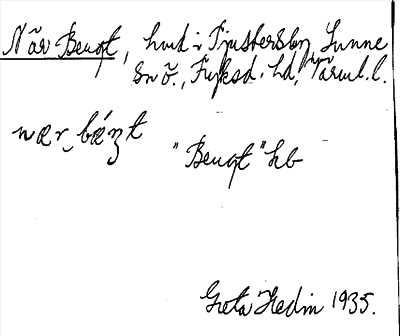 När Bengt, hmd i Tjustersby, Sunne
sn ö., Fryksd. hd, Värml. l.
nær, bæŋt
"Bengt" hb
Greta Hedin 1935.